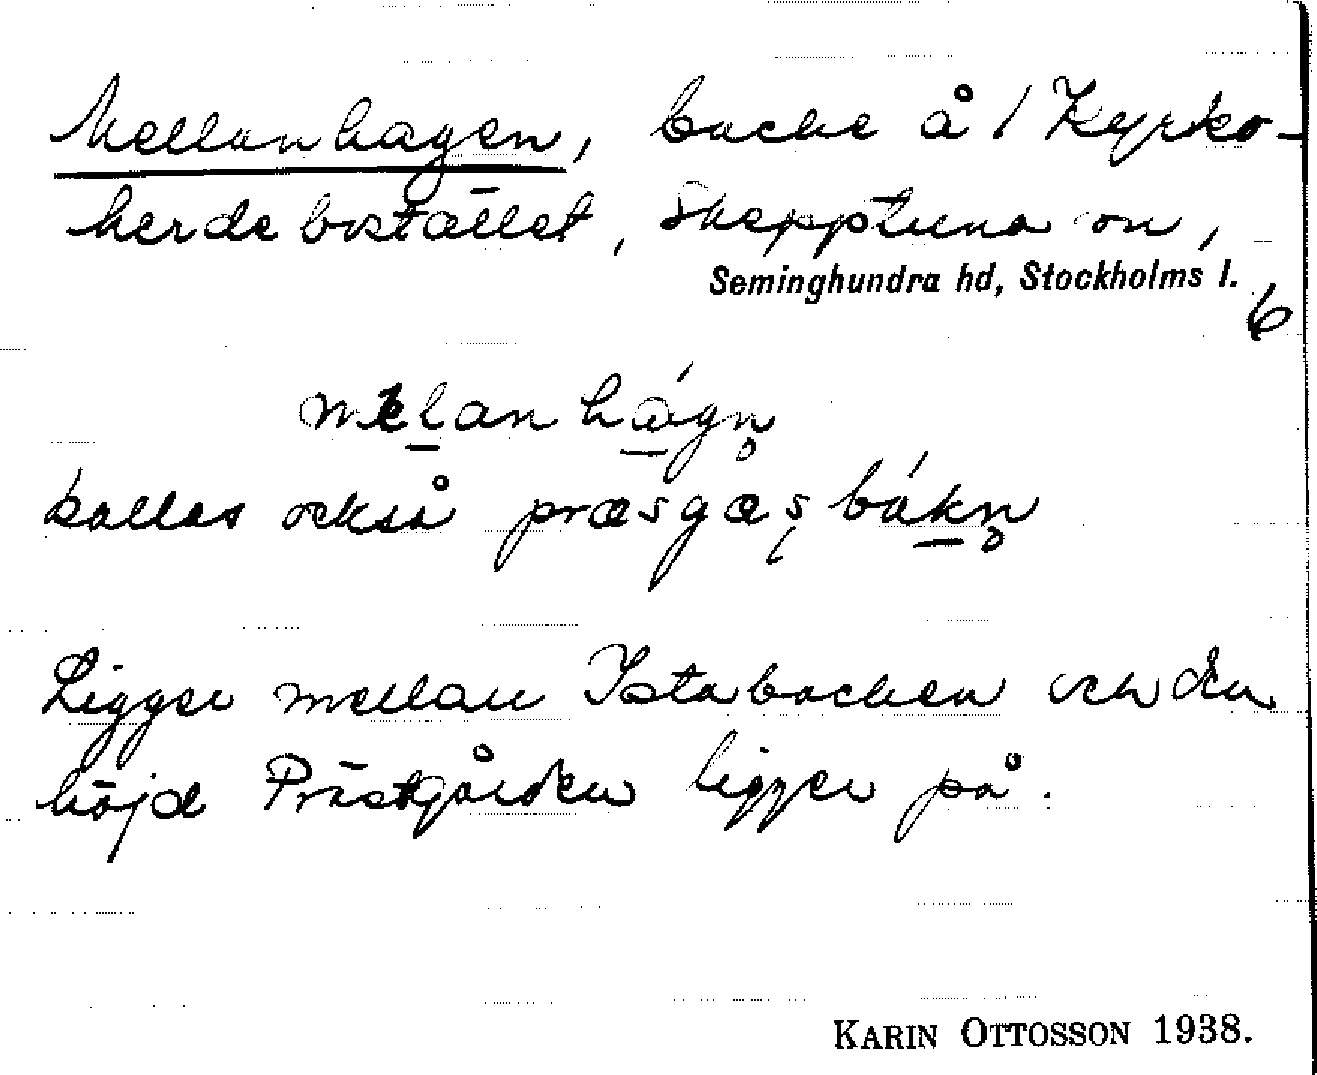 Mellanhagen, backe å 1 Kyrko-
herdebostället, Skepptuna sn,
Seminghundra hd, Stockholms l.
6
melanhágn̥
kallas också præsgæşbákn̥
Ligger mellan Istabacken och den
höjd Prästgården ligger på.
KARIN OTTOSSON 1938.